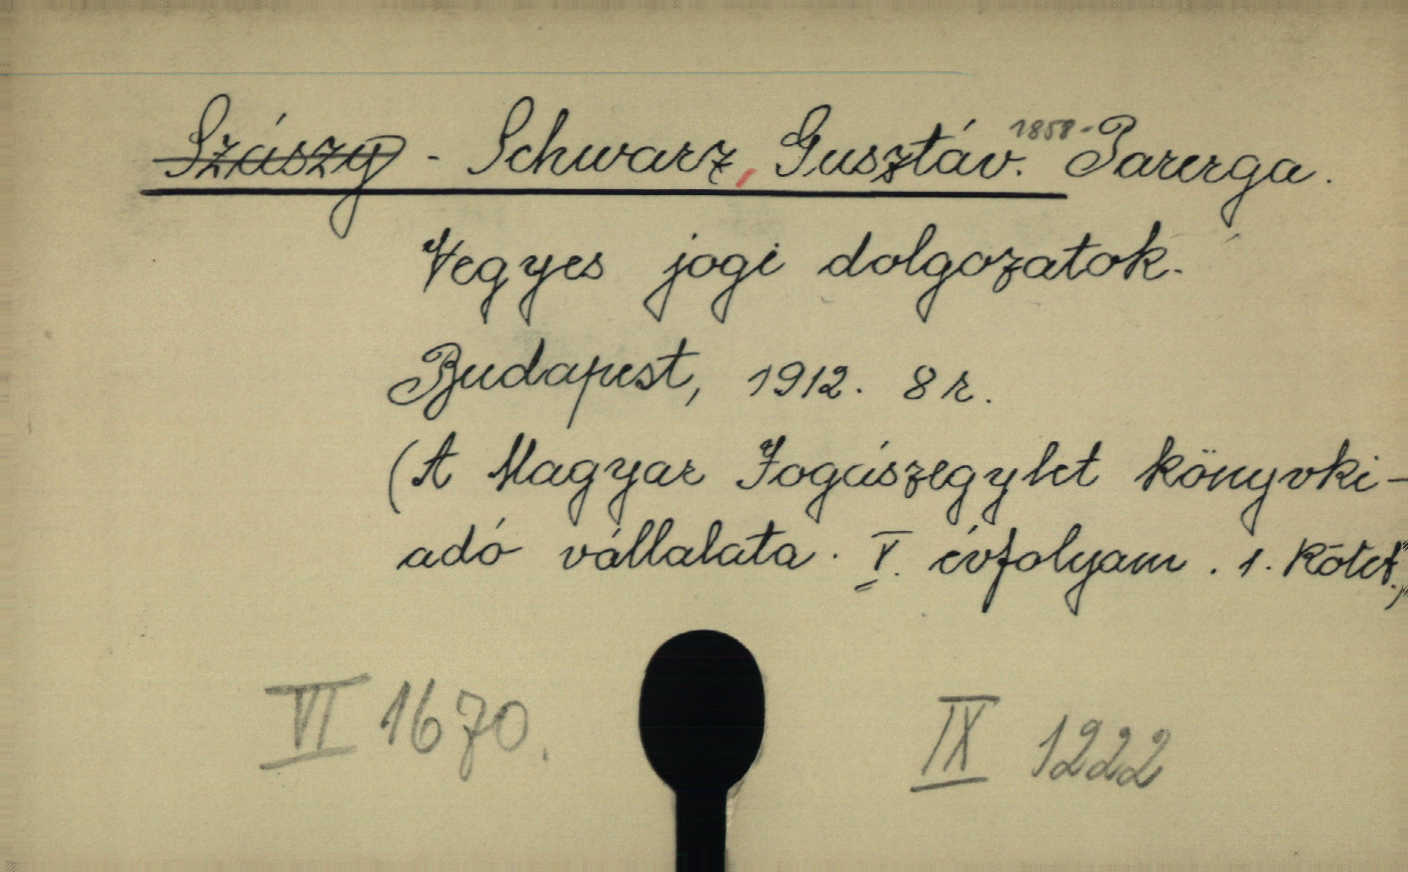 Szászy - Schwarz, Gusztáv. 1858- Parerga.
Vegyes jogi dolgozatok.
Budapest, 1912. 8 r.
(A Magyar Jogászegylet könyvki-
adó vállalata. V. évfolyam. 1. Kötet.)
VI 1670. IX 1222